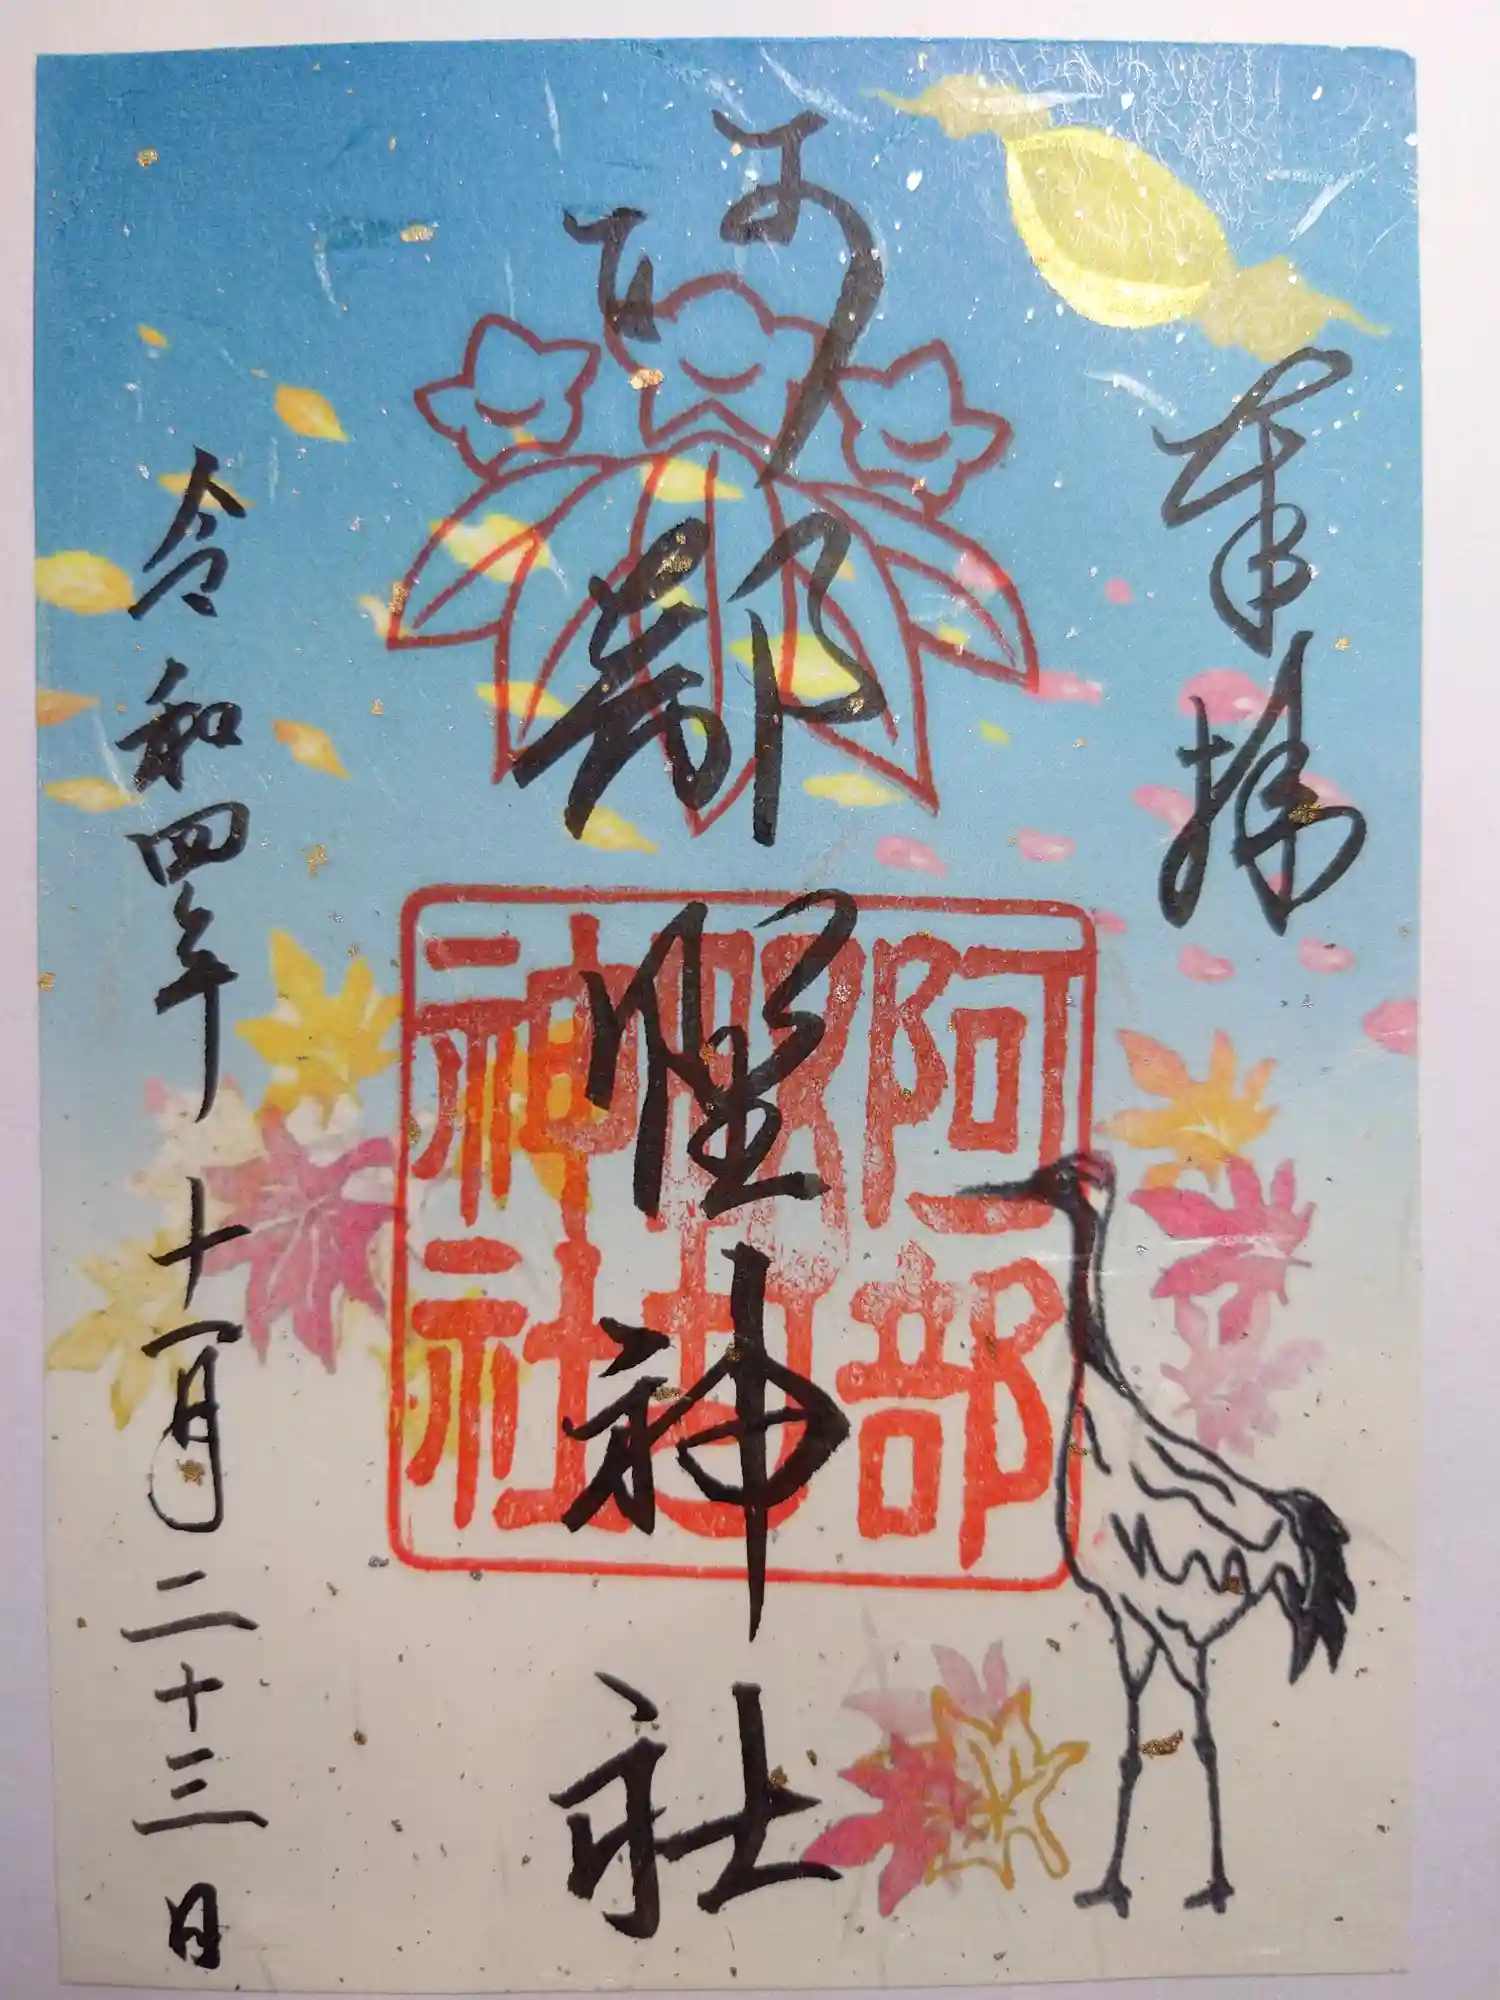 奉拝
阿部野神社
阿部
野
神社
令和四年十一月二十三日